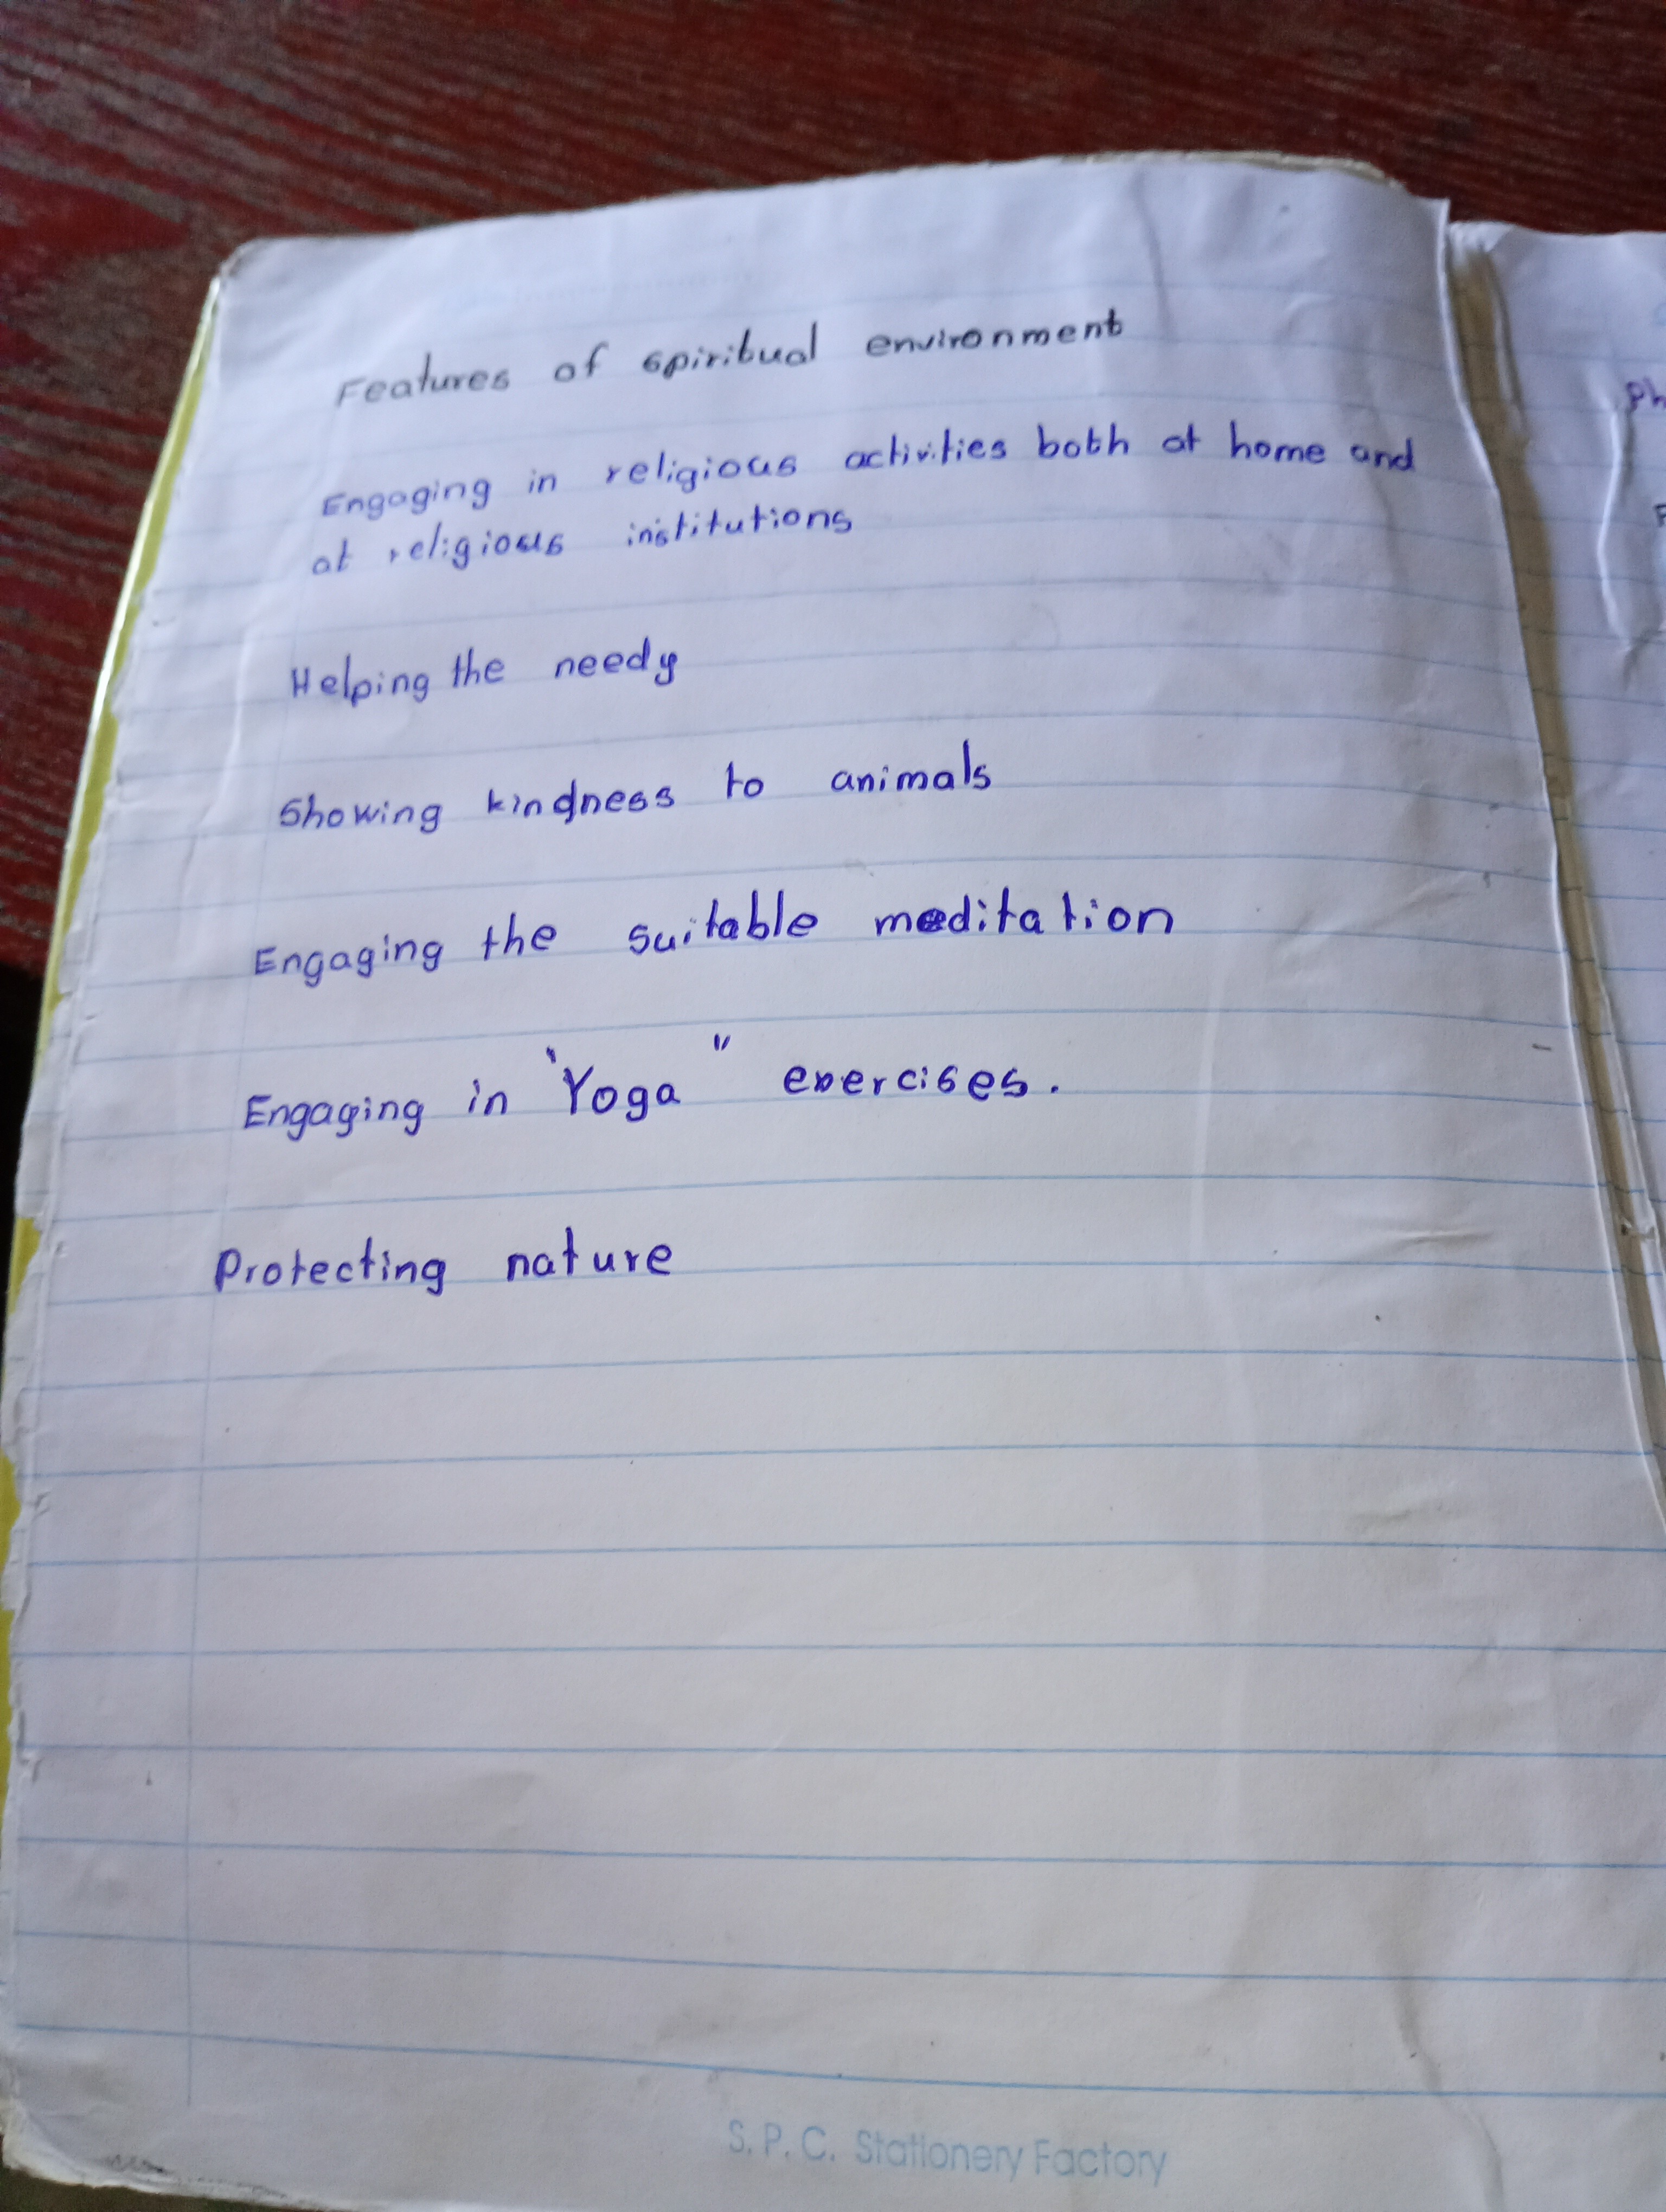 Features of spiritual environment
Engaging in religious activities both at home and
at religious institutions
Helping the needy
Showing kindness to animals
Engaging the suitable meditation
Engaging in "Yoga" exercises.
Protecting nature
Ph
S. P. C. Stationery Factory